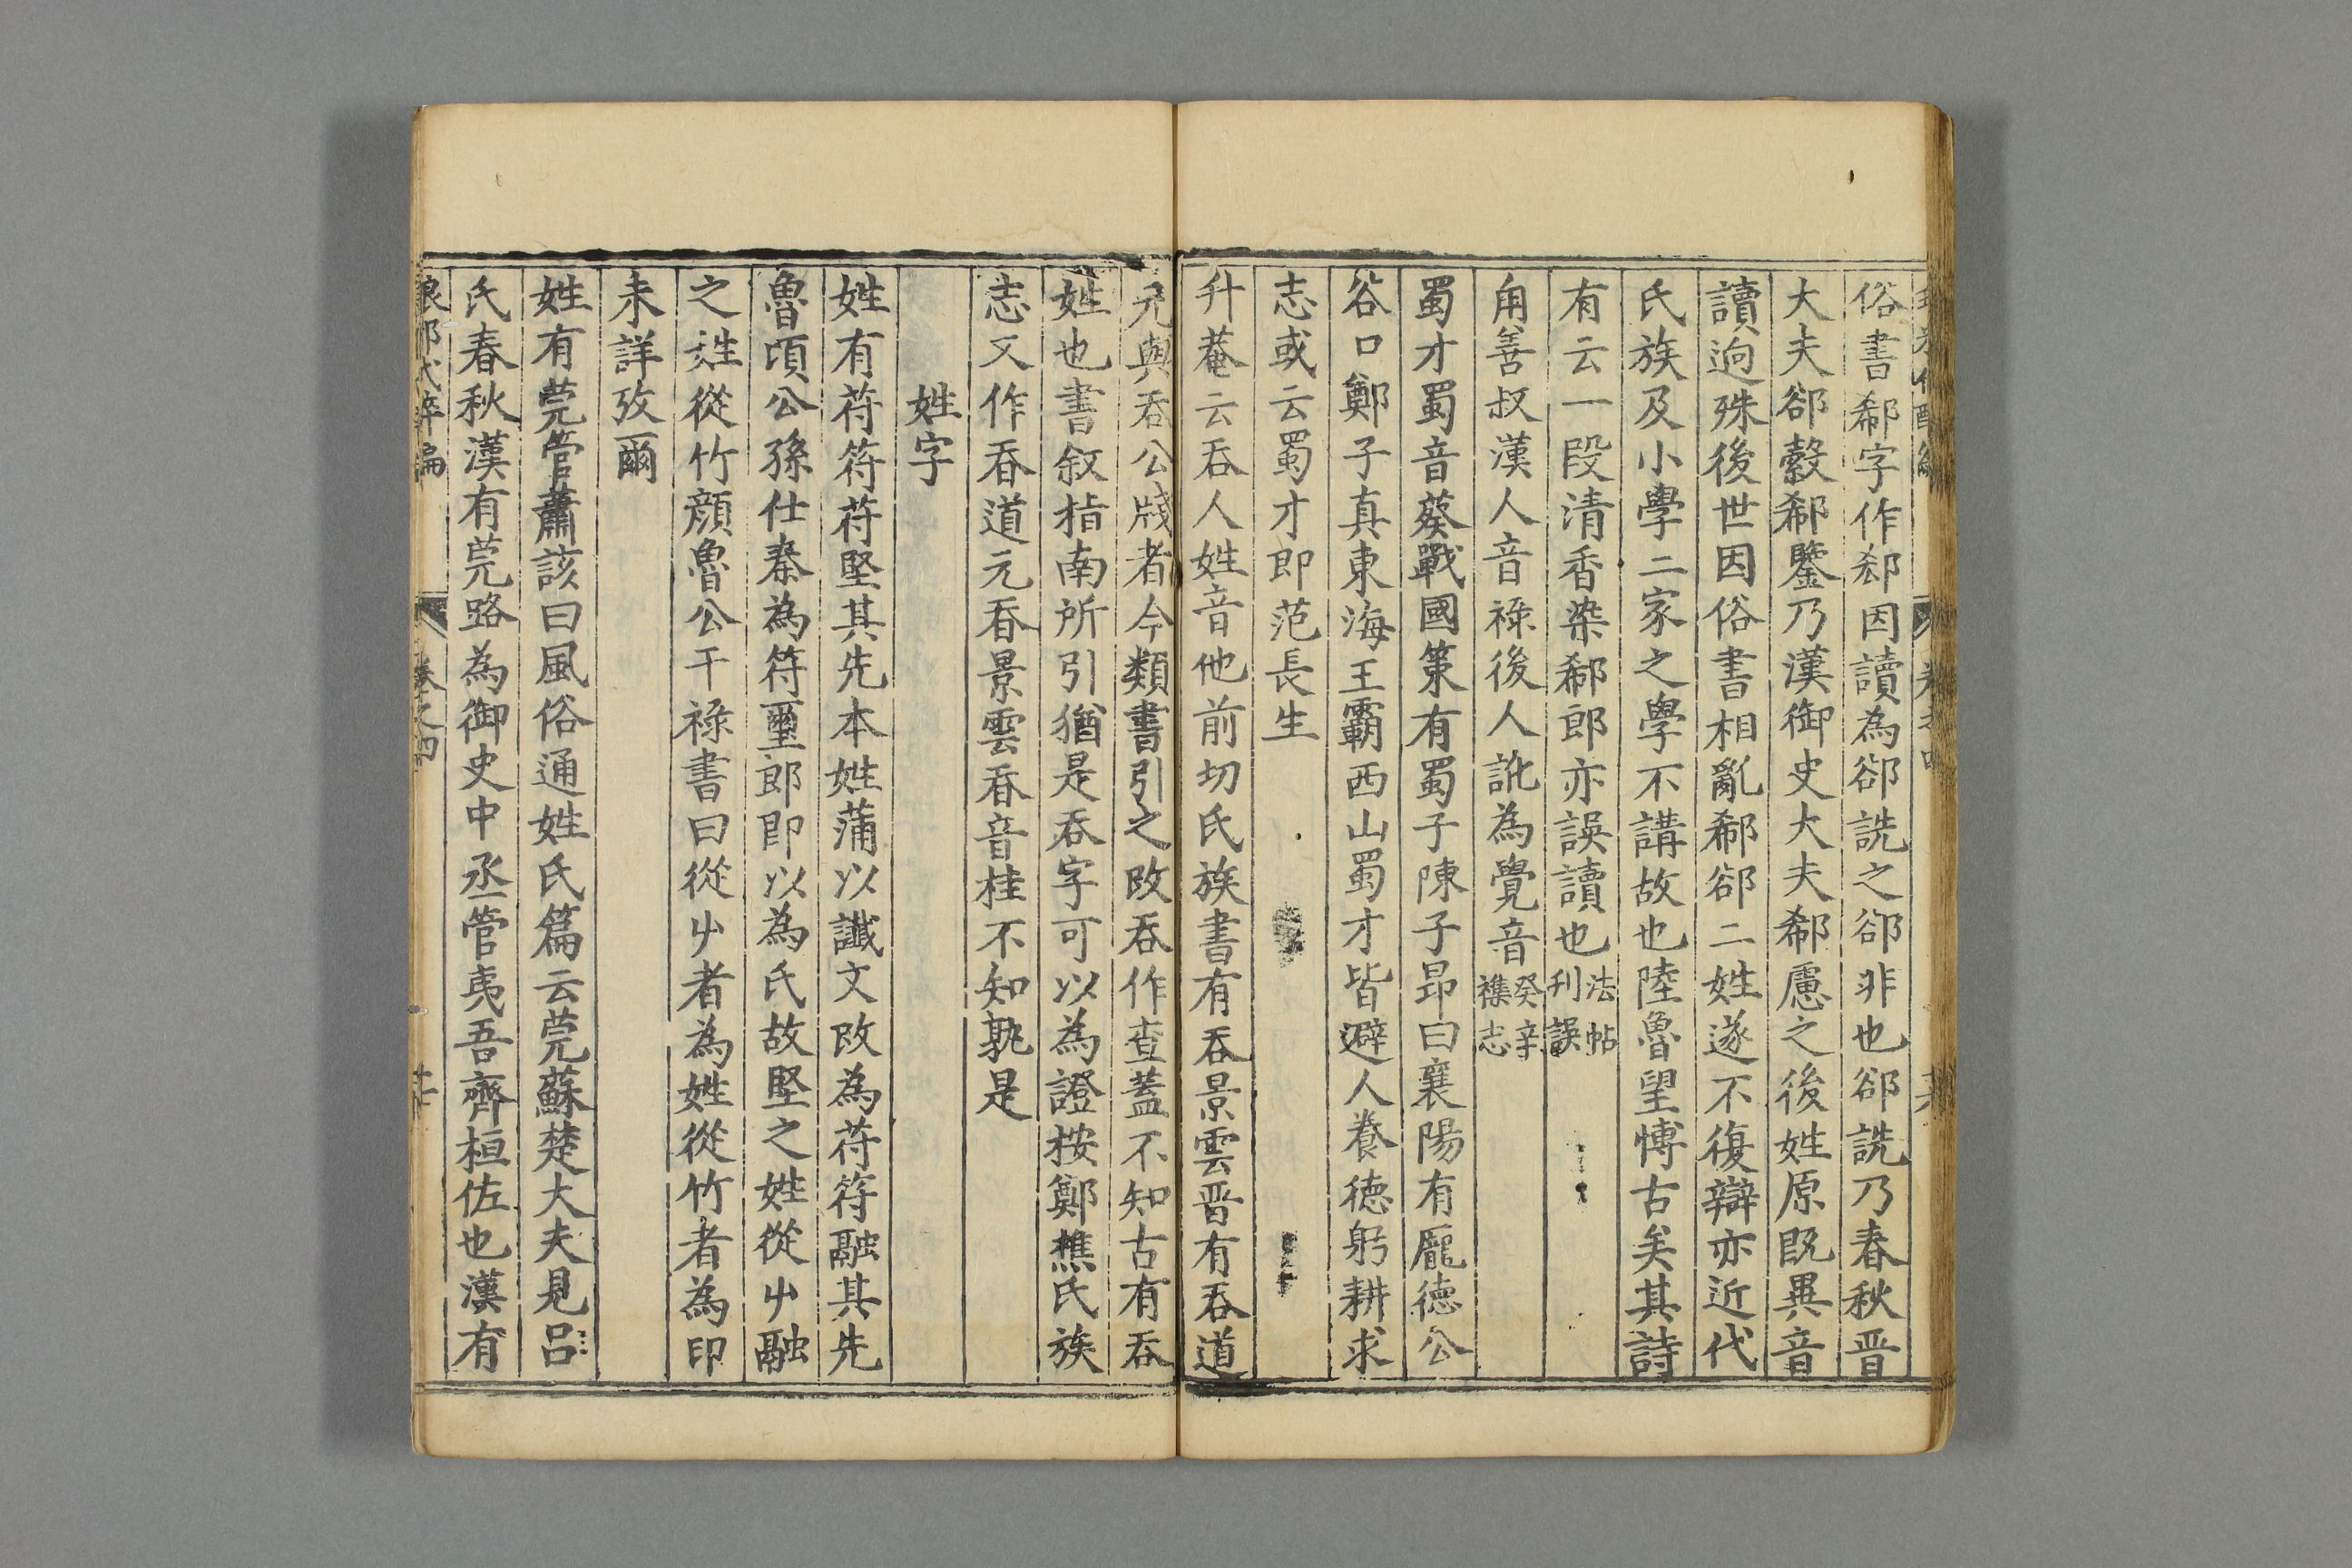 俗書郗字作郄因讀為郤詵之郤非也郤詵乃春秋晋
大夫郤縠郗鑒乃漢御史大夫郗慮之後姓原既異音
讀逈殊後世因俗書相亂郗郤二姓遂不復辯亦近代
氏族及小學二家之學不講故也陸魯望愽古矣其詩
有云一段清香染郗郎亦誤讀也法帖刊誤
甪善叔漢人音祿後人訛為覺音癸辛襍志
蜀才蜀音葵戰國策有蜀子陳子昂曰襄陽有龐德公
谷口鄭子真東海王霸西山蜀才皆避人養德躬耕求
志或云蜀才即范長生
升菴云吞人姓音他前切氏族書有吞景雲晋有吞道
元與吞公牋者今類書引之改吞作查蓋不知古有吞
姓也書叙指南所引猶是吞字可以為證按鄭樵氏族
志又作香道元香景雲香音桂不知孰是
姓字
姓有苻符苻堅其先本姓蒲以讖文改為苻符融其先
魯頃公孫仕秦為符璽郎即以為氏故堅之姓從艸融
之姓從竹顔魯公干祿書曰從艸者為姓從竹者為印
未詳攷爾
姓有莞管蕭該曰風俗通姓氏篇云莞蘇楚大夫見呂
氏春秋漢有莞路為御史中丞管夷吾齊桓佐也漢有
卷之四